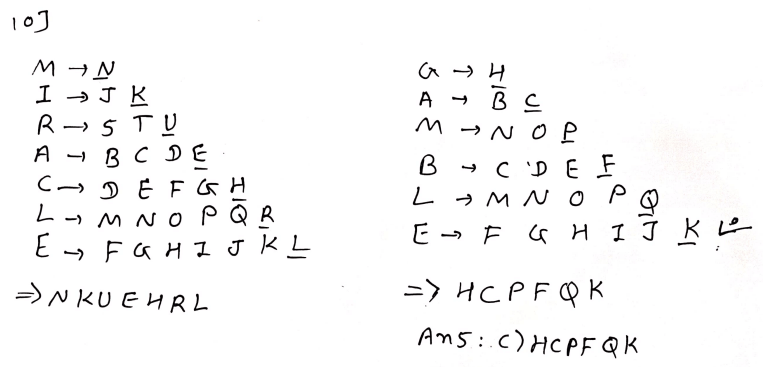 10]
M → N
I → J K
R → S T U
A → B C D E
C → D E F G H
L → M N O P Q R
E → F G H I J K L
=> N K U E H R L
G → H
A → B C
M → N O P
B → C D E F
L → M N O P Q
E → F G H I J K
=> H C P F Q K
Ans: C) HCPFQK